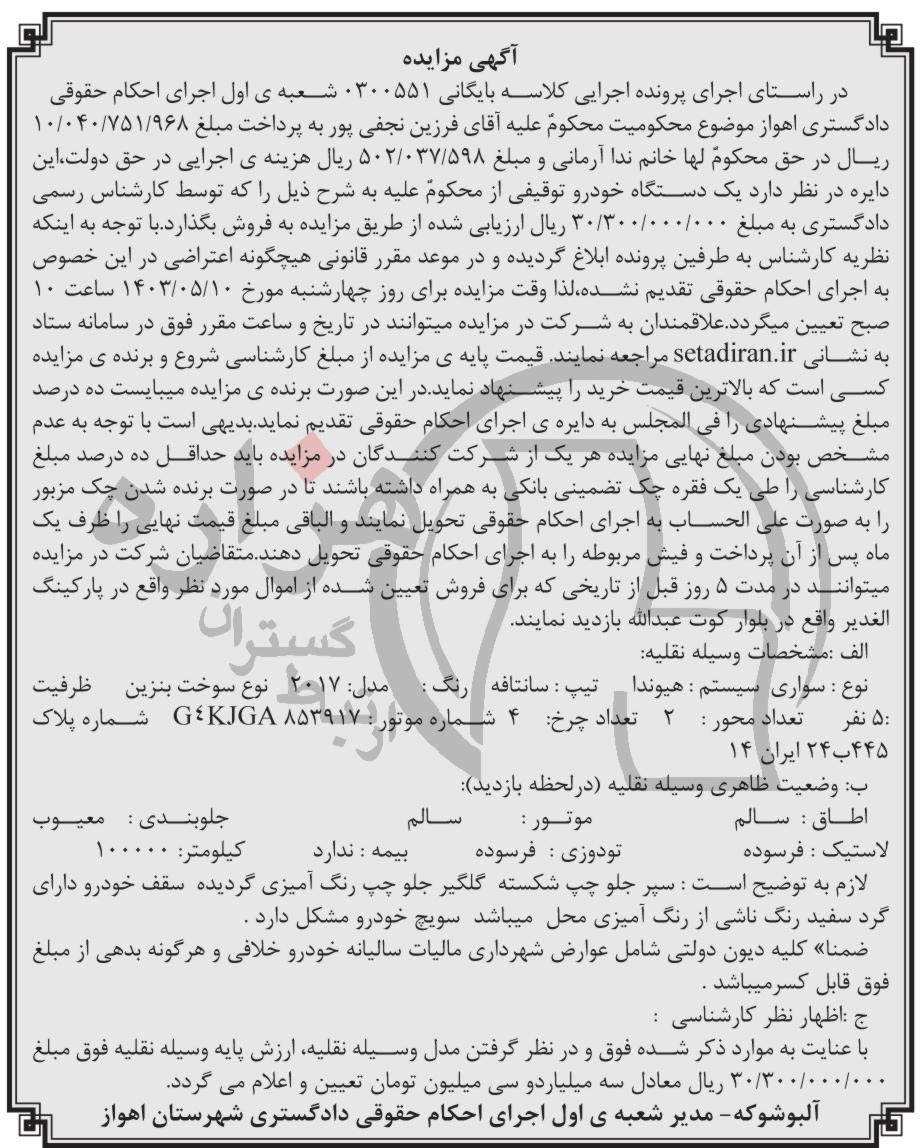 آگهی مزایده
در راستای اجرای پرونده اجرایی کلاسه بایگانی ۰۳۰۰۵۵۱ شعبه ی اول اجرای احکام حقوقی
دادگستری اهواز موضوع محکومیت محکومٌ علیه آقای فرزین نجفی پور به پرداخت مبلغ ۱۰/۰۴۰/۷۵۱/۹۶۸
ریال در حق محکومٌ لها خانم ندا آرمانی و مبلغ ۵۰۲/۰۳۷/۵۹۸ ریال هزینه ی اجرایی در حق دولت،این
دایره در نظر دارد یک دستگاه خودرو توقیفی از محکومٌ علیه به شرح ذیل را که توسط کارشناس رسمی
دادگستری به مبلغ ۳۰/۳۰۰/۰۰۰/۰۰۰ ریال ارزیابی شده از طریق مزایده به فروش بگذارد.با توجه به اینکه
نظریه کارشناس به طرفین پرونده ابلاغ گردیده و در موعد مقرر قانونی هیچگونه اعتراضی در این خصوص
به اجرای احکام حقوقی تقدیم نشده،لذا وقت مزایده برای روز چهارشنبه مورخ ۱۴۰۳/۰۵/۱۰ ساعت ۱۰
صبح تعیین میگردد.علاقمندان به شرکت در مزایده میتوانند در تاریخ و ساعت مقرر فوق در سامانه ستاد
به نشانی setadiran.ir مراجعه نمایند. قیمت پایه ی مزایده از مبلغ کارشناسی شروع و برنده ی مزایده
کسی است که بالاترین قیمت خرید را پیشنهاد نماید.در این صورت برنده ی مزایده میبایست ده درصد
مبلغ پیشنهادی را فی المجلس به دایره ی اجرای احکام حقوقی تقدیم نماید.بدیهی است با توجه به عدم
مشخص بودن مبلغ نهایی مزایده هر یک از شرکت کنندگان در مزایده باید حداقل ده درصد مبلغ
کارشناسی را طی یک فقره چک تضمینی بانکی به همراه داشته باشند تا در صورت برنده شدن چک مزبور
را به صورت علی الحساب به اجرای احکام حقوقی تحویل نمایند و الباقی مبلغ قیمت نهایی را ظرف یک
ماه پس از آن پرداخت و فیش مربوطه را به اجرای احکام حقوقی تحویل دهند.متقاضیان شرکت در مزایده
میتوانند در مدت ۵ روز قبل از تاریخی که برای فروش تعیین شده از اموال مورد نظر واقع در پارکینگ
الغدیر واقع در بلوار کوت عبدالله بازدید نمایند.
الف :مشخصات وسیله نقلیه:
نوع : سواری سیستم : هیوندا تیپ : سانتافه رنگ : مدل: ۲۰۱۷ نوع سوخت بنزین ظرفیت
:۵ نفر تعداد محور : ۲ تعداد چرخ: ۴ شماره موتور : G٤KJGA ۸۵۳۹۱۷ شماره پلاک
۴۴۵ب۲۴ ایران ۱۴
ب: وضعیت ظاهری وسیله نقلیه (درلحظه بازدید):
اطاق : سالم موتور : سالم جلوبندی : معیوب
لاستیک : فرسوده تودوزی : فرسوده بیمه : ندارد کیلومتر: ۱۰۰۰۰۰
لازم به توضیح است : سپر جلو چپ شکسته گلگیر جلو چپ رنگ آمیزی گردیده سقف خودرو دارای
گرد سفید رنگ ناشی از رنگ آمیزی محل میباشد سویچ خودرو مشکل دارد .
ضمنا» کلیه دیون دولتی شامل عوارض شهرداری مالیات سالیانه خودرو خلافی و هرگونه بدهی از مبلغ
فوق قابل کسرمیباشد .
ج :اظهار نظر کارشناسی :
با عنایت به موارد ذکر شده فوق و در نظر گرفتن مدل وسیله نقلیه، ارزش پایه وسیله نقلیه فوق مبلغ
۳۰/۳۰۰/۰۰۰/۰۰۰ ریال معادل سه میلیاردو سی میلیون تومان تعیین و اعلام می گردد.
آلبوشوکه- مدیر شعبه ی اول اجرای احکام حقوقی دادگستری شهرستان اهواز
هزاره
گستران
ارتباط